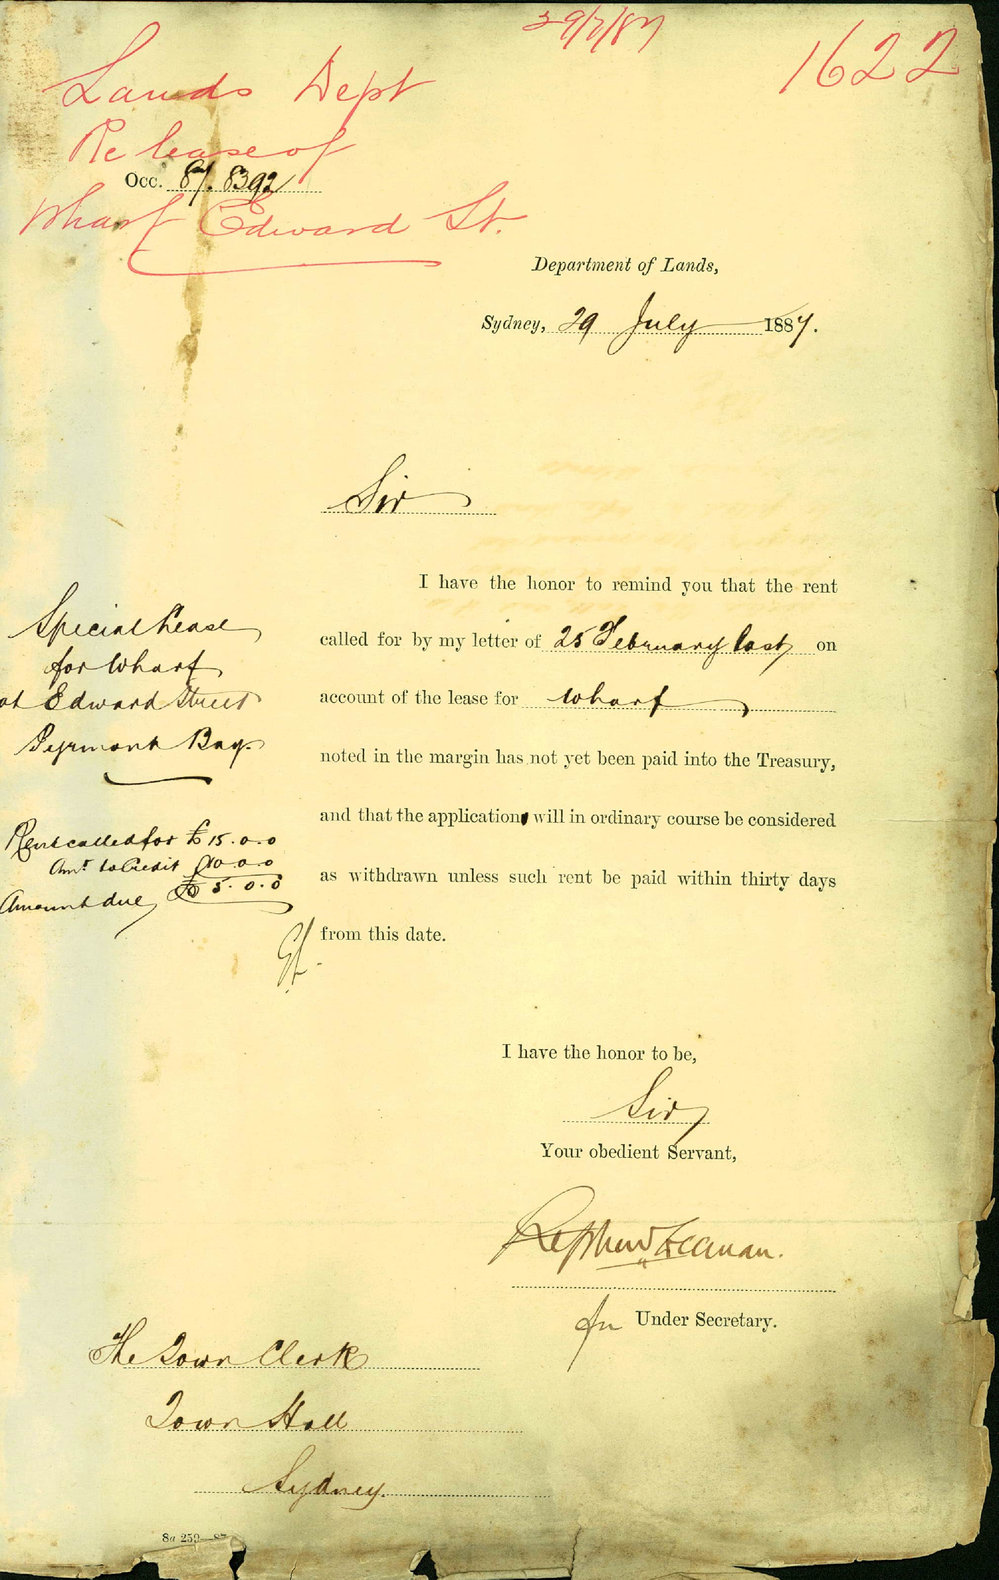 29/7/87
1622
Lands Dept
Re lease of
Occ. 87. 8392
Wharf Edward St.
Department of Lands,
Sydney, 29 July 1887.
Sir
I have the honor to remind you that the rent
called for by my letter of 25 February last on
account of the lease for Wharf
noted in the margin has not yet been paid into the Treasury,
and that the application will in ordinary course be considered
as withdrawn unless such rent be paid within thirty days
from this date.
Special Lease
for Wharf
at Edward Street
Pyrmont Bay.
Rent called for £15.0.0
Amt to Credit £10.0.0
Amount due £5.0.0
I have the honor to be,
Sir
Your obedient Servant,
Stephen Freeman.
for Under Secretary.
The Town Clerk
Town Hall
Sydney.
8a 259—87